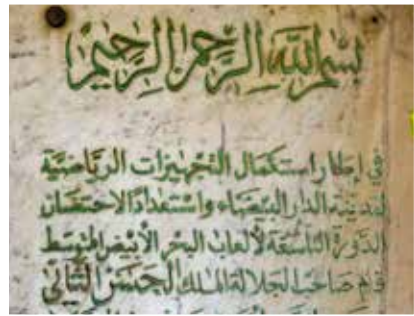 بسم الله الرحمن الرحيم
في إطار استكمال التجهيزات الرياضية
لمدينة الدار البيضاء واستعدادا لاحتضان
الدورة التاسعة لألعاب البحر الأبيض المتوسط
قام صاحب الجلالة الملك الحسن الثاني